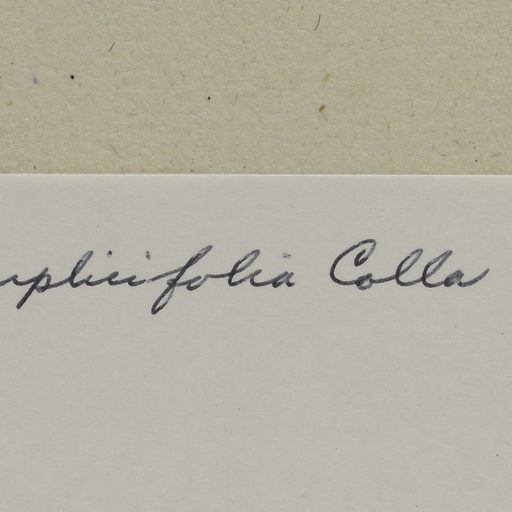 mplicifolia Colla